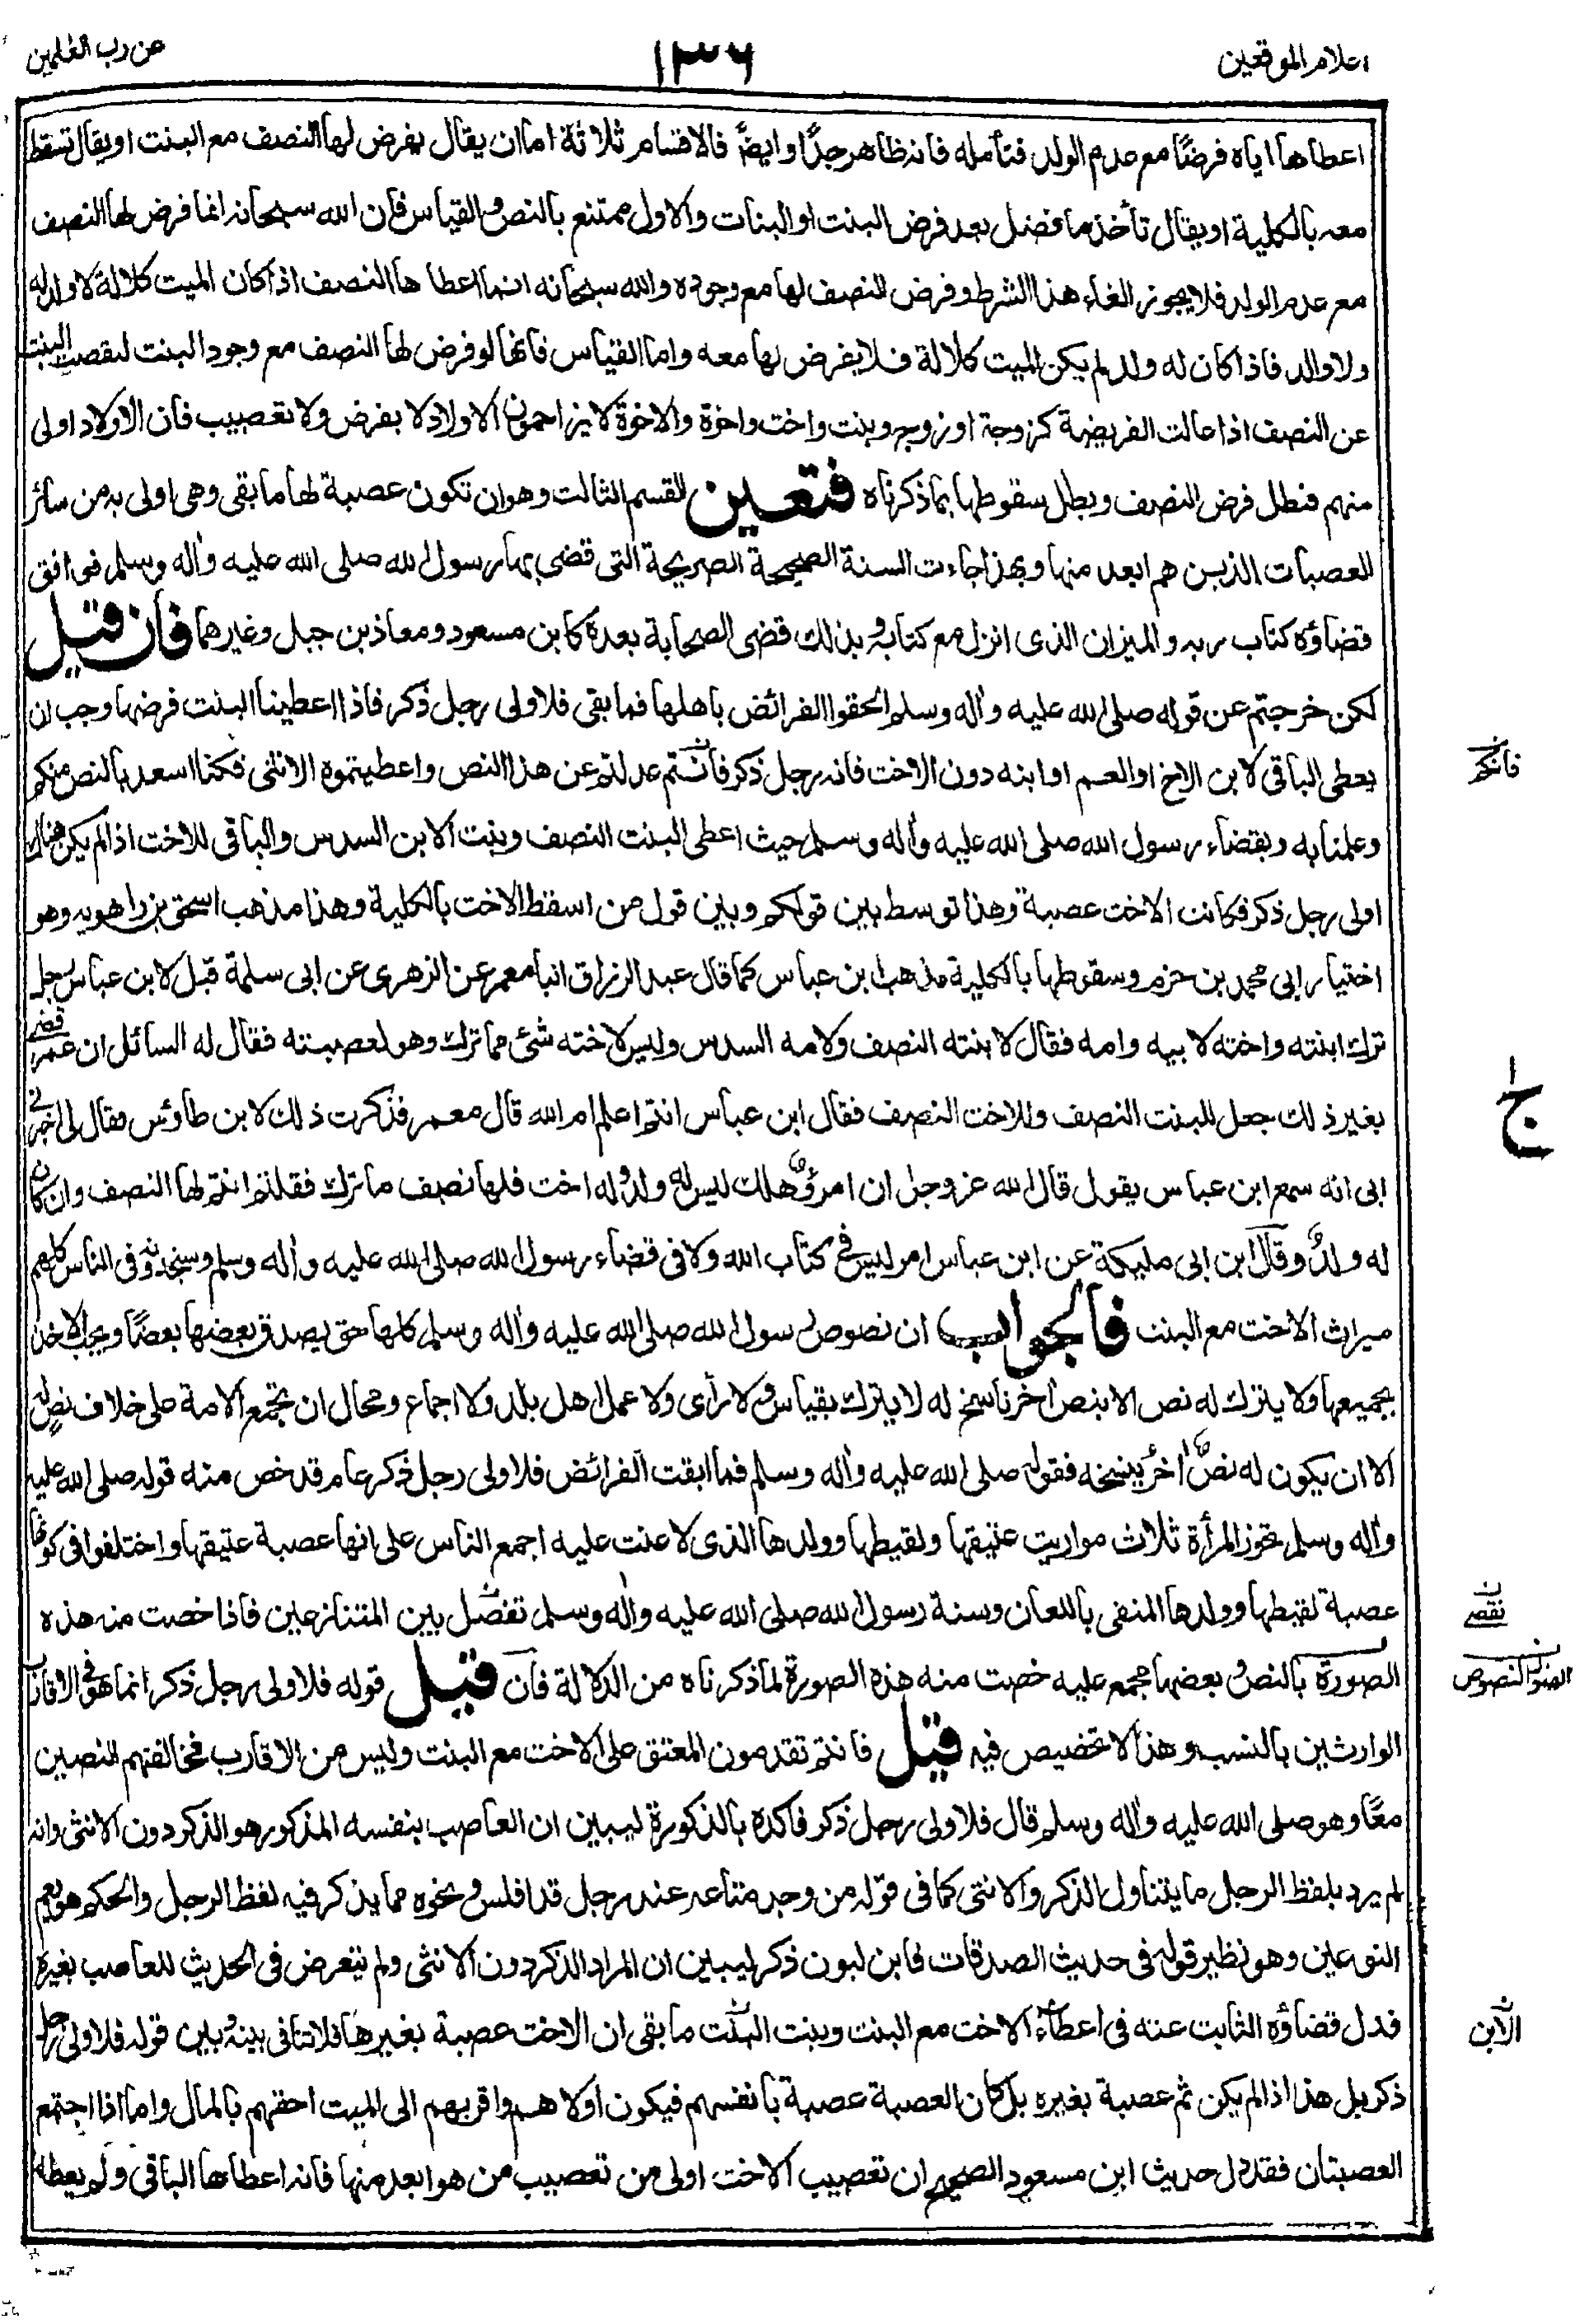 اعلام الموقعین
۱۳۶
عن رب العلمین
اعطاها ایاه فرضًا مع عدم الولد فتأمله فانه ظاهر جدًّا وایضًا فالاقسام ثلاثة اما ان یقال یفرض لها النصف مع البنت او یقال تسقط
معه بالکلیة او یقال تأخذ ما فضل بعد فرض البنت او البنات والاول ممتنع بالنص والقیاس فان الله سبحانه انما فرض لها النصف
مع عدم الولد فلا یجوز الغاء هذا الشرط وفرض النصف لها مع وجوده والله سبحانه انما اعطا ها النصف اذا کان المیت کلالة لا ولد له
ولا والد فاذا کان له ولد لم یکن المیت کلالة فلا یفرض لها معه واما القیاس فانها لو فرض لها النصف مع وجود البنت لنقصت البنت
عن النصف اذا عالت الفریضة کزوجة او زوج وبنت واخت واخوة والاخوة لا یزاحمون الاولاد لا بفرض ولا تعصیب فان الاولاد اولی
منهم فبطل فرض النصف وبطل سقوطها بما ذکرناه فتعین القسم الثالث وهو ان تکون عصبة لها ما بقی وهی اولی به من سائر
العصبات الذین هم ابعد منها وبهذا جاءت السنة الصحیحة الصریحة التی قضی بها رسول الله صلی الله علیه واٰله وسلم فوافق
قضاؤه کتاب ربه والمیزان الذی انزل مع کتابه وبذلك قضی الصحابة بعده کابن مسعود ومعاذ بن جبل وغیرهما فان قیل
لکن خرجتم عن قوله صلی الله علیه واٰله وسلم الحقوا الفرائض باهلها فما بقی فلاولی رجل ذکر فاذا اعطینا البنت فرضها وجب ان
یعطی الباقی لابن الاخ او العم او ابنه دون الاخت فانه رجل ذکر فانتم عدلتم عن هذا النص واعطیتموه الانثی فکنا اسعد بالنص منکم
وعملنا به وبقضاء رسول الله صلی الله علیه واٰله وسلم حیث اعطی البنت النصف وبنت الابن السدس والباقی للاخت اذا لم یکن هناك
اولی رجل ذکر فکانت الاخت عصبة وهذا توسط بین قولکم وبین قول من اسقط الاخت بالکلیة وهذا مذهب اسحق بن راهویه وهو
اختیار ابی محمد بن حزم وسقوطها بالکلیة مذهب ابن عباس کما قال عبد الرزاق انبا معمر عن الزهری عن ابی سلمة قیل لابن عباس رجل
ترك ابنته واخته لابیه وامه فقال لابنته النصف ولامه السدس ولیس لاخته شئ مما ترك وهو لعصبته فقال له السائل ان عمر قضی
بغیر ذلك جعل للبنت النصف وللاخت النصف فقال ابن عباس انتم اعلم ام الله قال معمر فذکرت ذلك لابن طاؤس فقال لی اخبرنی
ابی انه سمع ابن عباس یقول قال الله عز وجل ان امرؤٌ هلك لیس له ولدٌ وله اخت فلها نصف ما ترك فقلتم انتم لها النصف وان کان
له ولدٌ وقال ابن ابی ملیکة عن ابن عباس امر لیس فی کتاب الله ولا فی قضاء رسول الله صلی الله علیه واٰله وسلم وستجدونه فی الناس کلهم
میراث الاخت مع البنت فالجواب ان نصوص رسول الله صلی الله علیه واٰله وسلم کلها حق یصدق بعضها بعضًا ویجب الاخذ
بجمیعها ولا یترك له نص الا بنص اٰخر ناسخ له لا یترك بقیاس ولا رأی ولا عمل اهل بلد ولا اجماع ومحال ان تجتمع الامة علی خلاف نص له
الا ان یکون له نصٌ اٰخرُ ینسخه فقوله صلی الله علیه واٰله وسلم فما ابقت الفرائض فلاولی رجل ذکر عام قد خص منه قوله صلی الله علیه
واٰله وسلم تحوز المرأة ثلاث مواریث عتیقها ولقیطها وولدها الذی لاعنت علیه اجمع الناس علی انها عصبة عتیقها واختلفوا فی کونها
عصبة لقیطها وولدها المنفی باللعان وسنة رسول الله صلی الله علیه واٰله وسلم تفصل بین المتنازعین فاذا خصت منه هذه
الصورة بالنص وبعضها مجمع علیه خصت منه هذه الصورة لما ذکرناه من الدلالة فان قیل قوله فلاولی رجل ذکر انما هو فی الاقارب
الوارثین بالنسب وهذا لا تخصیص فیه قیل فانتم تقدمون المعتق علی الاخت مع البنت ولیس من الاقارب فخالفتم النصین
معًا وهو صلی الله علیه واٰله وسلم قال فلاولی رجل ذکر فاکده بالذکورة لیبین ان العاصب بنفسه المذکور هو الذکر دون الانثی وانه
لم یرد بلفظ الرجل ما یتناول الذکر والانثی کما فی قوله من وجد متاعه عند رجل قد افلس ونحوه مما یذکر فیه لفظ الرجل والحکم هو یعم
النوعین وهو نظیر قوله فی حدیث الصدقات فابن لبون ذکر لیبین ان المراد الذکر دون الانثی ولم یتعرض فی الحدیث للعاصب بغیره
فدل قضاؤه الثابت عنه فی اعطاء الاخت مع البنت وبنت البنت ما بقی ان الاخت عصبة بغیرها فلا تنافی بینه وبین قوله فلاولی رجل
ذکر بل هذا اذا لم یکن ثم عصبة بغیره بل کان العصبة عصبة بانفسهم فیکون اولاهم واقربهم الی المیت احقهم بالمال واما اذا اجتمع
العصبتان فقد دل حدیث ابن مسعود الصحیح ان تعصیب الاخت اولی من تعصیب من هو ابعد منها فانه اعطاها الباقی ولم یعطه
فانکم
ج
نقص
النصوص
الابن